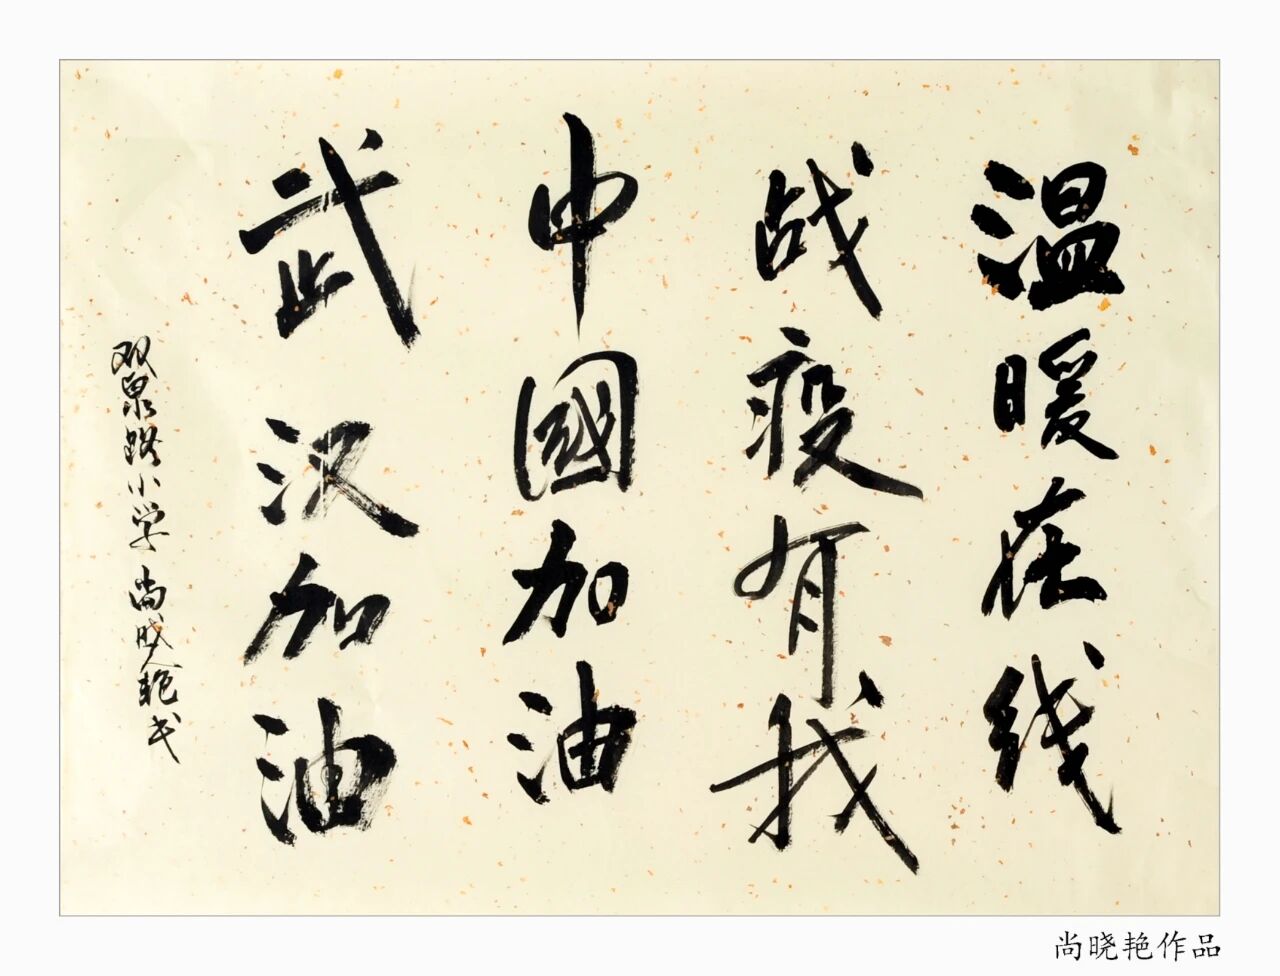 温暖在线
战疫有我
中國加油
武汉加油
双泉路小学尚晓艳书
尚晓艳作品